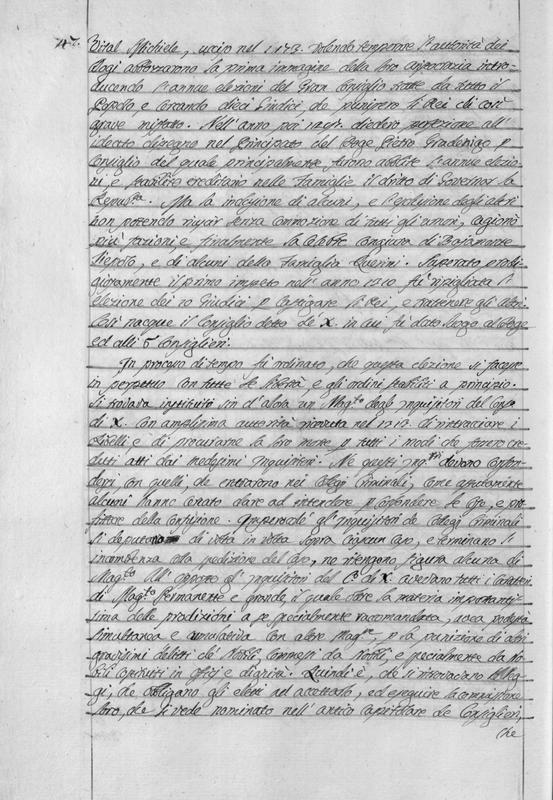 Vital Michiele, ucciso nel 1173. volendo temperare l'autorità dei
Dogi abbozzarono la prima immagine della loro aristocrazia intro-
ducendo l'annue elezioni del Gran Consiglio tratte da tutto il
Popolo, e creando dieci Giudici da punire li Rei di così
grave misfatto. Nell'anno poi 1297. diedero perfezione all'
ideato disegno nel Principato del Doge Pietro Gradenigo p
Consiglio del quale principalmente furono abolite l'annue elezio-
ni, e stabilito ereditario nelle Famiglie il diritto di Governar la
Repub.ca. Ma la inclusione di alcuni, e l'esclusione degli altri
non potendo riuscir senza commozione di tutti gli umori, cagionò
più fazioni e finalmente la celebre congiura di Bajamonte
Tiepolo, e di alcuni della Famiglia Querini. Superato prodi-
giosamente il primo impeto nell'anno 1310. fù ripigliata l'
elezione dei 10 Giudici p castigare li Rei, e trattenere gli altri.
Così nacque il Consiglio detto de' X. in cui fù dato luogo al Doge
ed alli 6 Consiglieri.
In processo di tempo fù ordinato, che questa elezione si facesse
in perpetuo con tutte le libertà, e gli ordini stabiliti a principio.
Si trovava instituito sin d'alora un Mag.to degl'Inquisitori del Cons.o
di X. con amplissima autorità ricevuta nel 1313. di rintracciare i
Ribelli e di procurarne la loro morte p tutti i modi che fossero cre-
duti atti dai medesimi Inquisitori. Ne questi Inq.ri devono confon-
dersi con quelli, che entrarono nei Collegi Criminali, come
alcuni hanno cercato dare ad intendere p confondere le cose, e
della Confusione. Imperocchè gl'Inquisitori de Collegi Criminali
si deputano di volta in volta sopra ciascun Caso, e terminano l'
incombenza colla spedizione del Caso, ne ritengono figura alcuna di
Mag.to All'opposto gl'Inquisitori del C.o di X avevano tutti i Caratteri
di Mag.to Permanente e grande, il quale oltre la materia importantis-
sima delle prodizioni a se specialmente racomandata, aveva podestà
simultanea e cumulativa con altro Mag.to p la punizione di altri
gravissimi delitti de' Nobili commessi da Nobili, e specialmente da No-
bili costituiti in offici e dignità. Quindi è, che si ritrovavano Leg-
gi, che obligano gli eletti ad accettarlo, ed eseguire la commissione
loro, che si vede nominato nell'antico capitolare de Consiglieri,
che